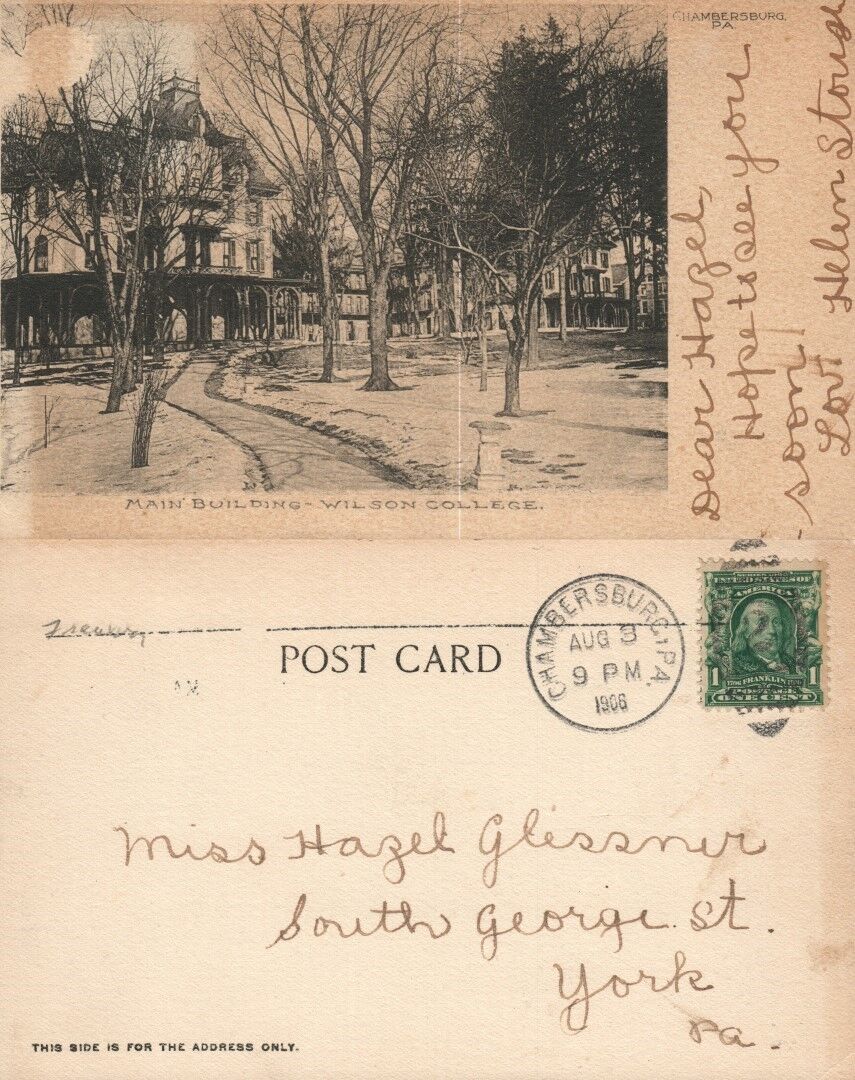 CHAMBERSBURG,
PA.
Dear Hazel,
Hope to see you
soon
Love Helen Stouch
MAIN BUILDING - WILSON COLLEGE.
POST CARD
CHAMBERSBURG, PA.
AUG 3
9 PM
1906
SERIES 1902
UNITED STATES OF
AMERICA
1706 FRANKLIN 1790
1 POSTAGE 1
ONE CENT
Miss Hazel Glessner
South George St.
York
Pa.
THIS SIDE IS FOR THE ADDRESS ONLY.